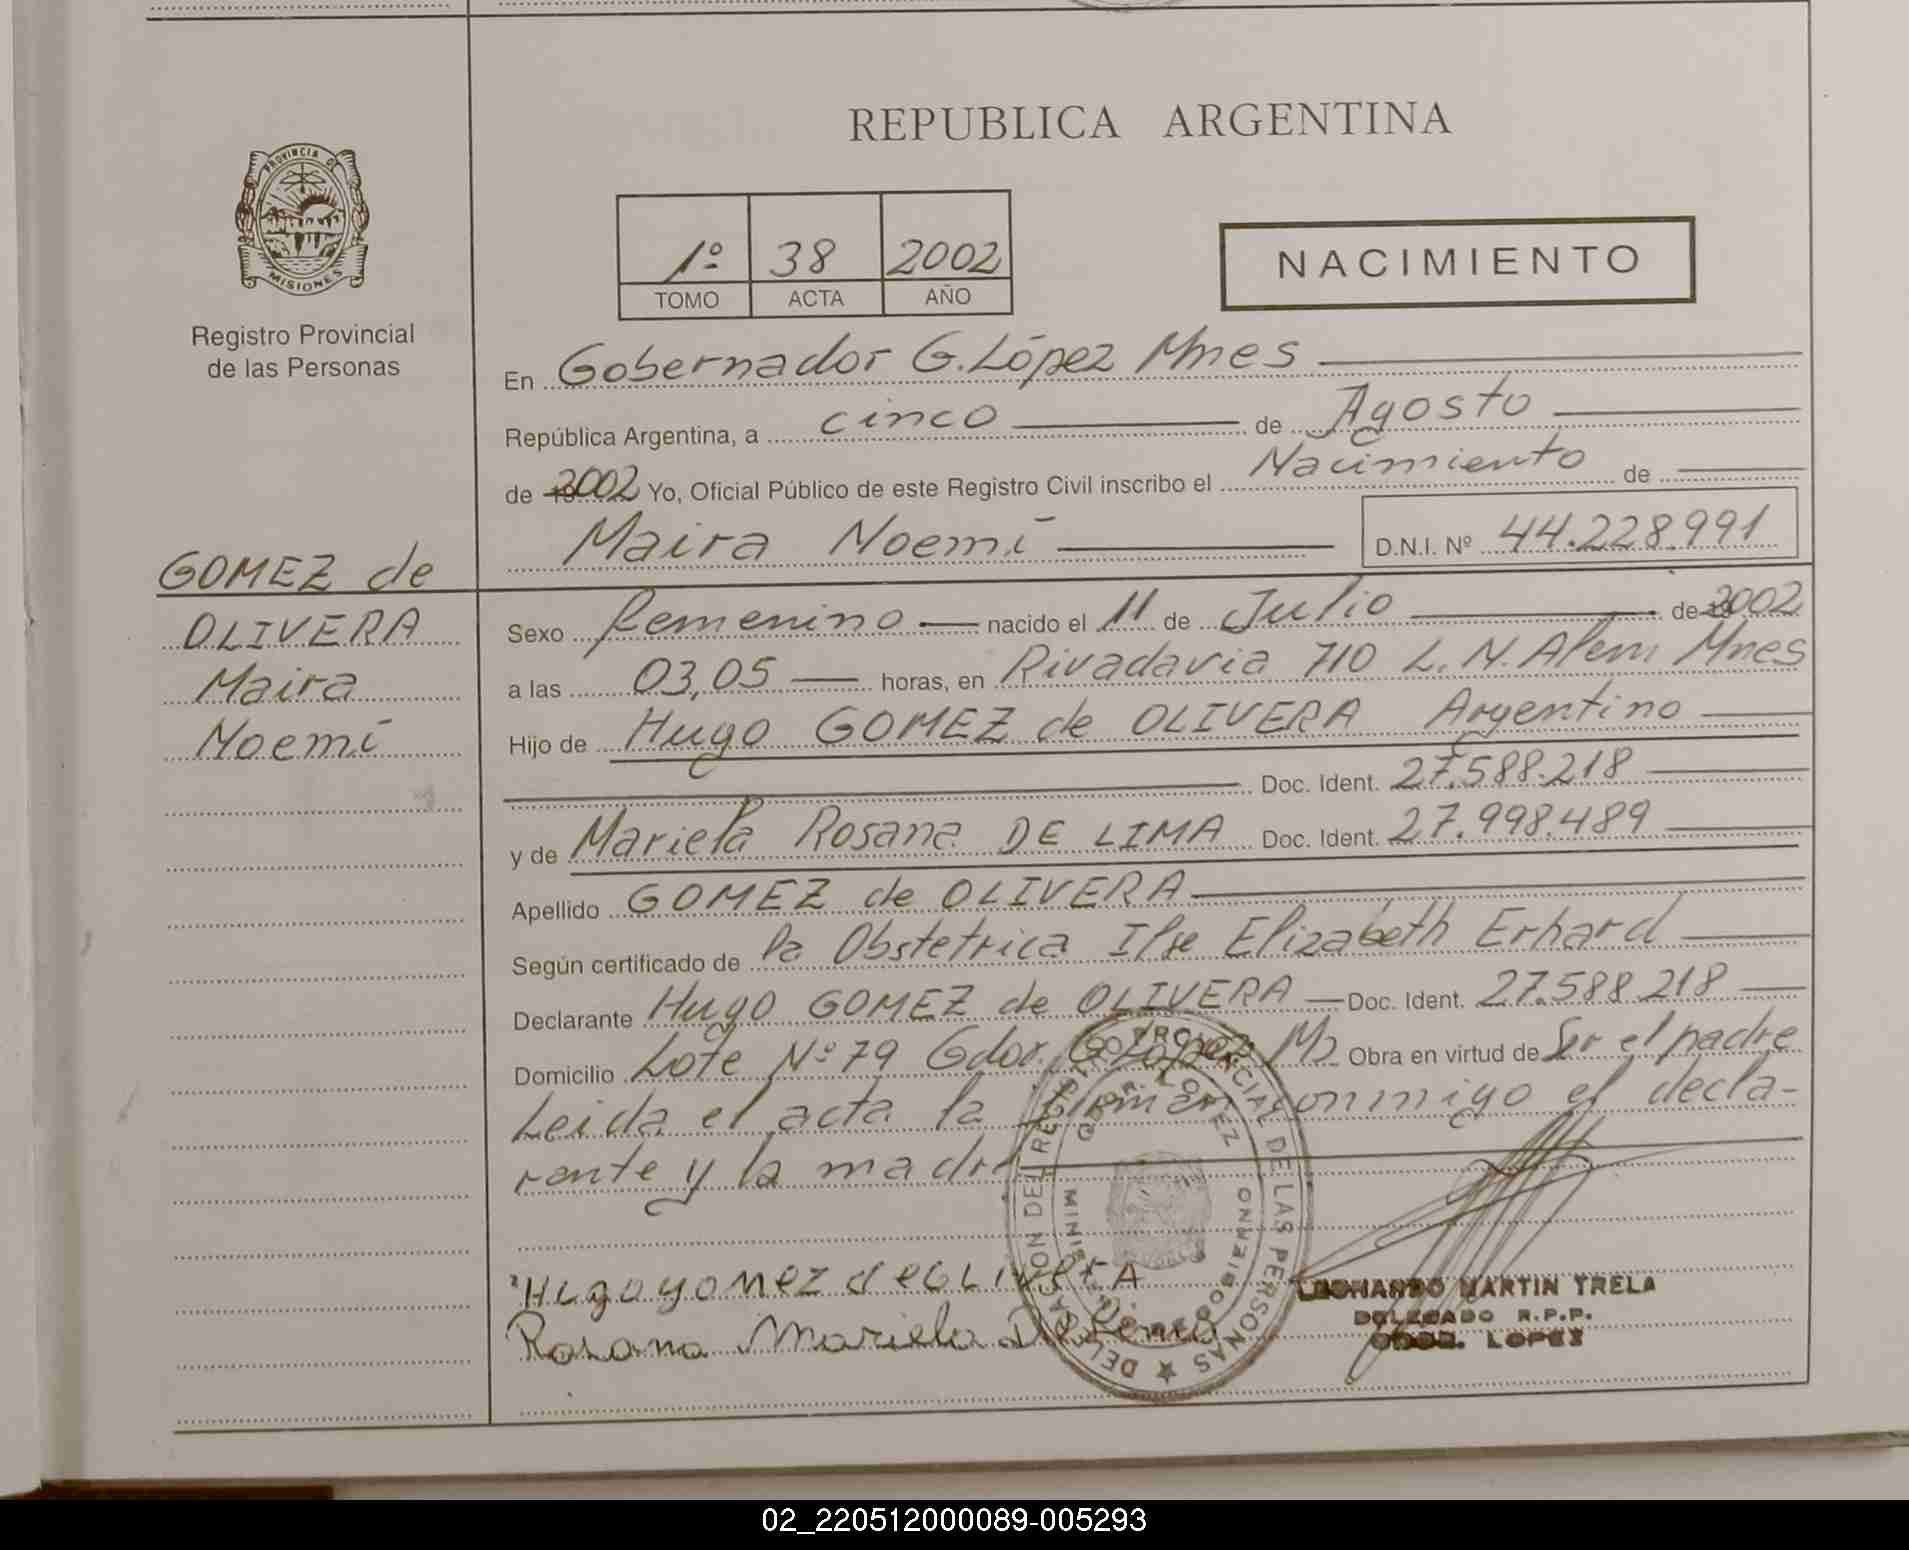 REPUBLICA ARGENTINA
PROVINCIA DE
MISIONES
Registro Provincial
de las Personas
1º 38 2002
TOMO ACTA AÑO
NACIMIENTO
En Gobernador G. López Mnes
República Argentina, a cinco de Agosto
de 2002 Yo, Oficial Público de este Registro Civil inscribo el Nacimiento de
Maira Noemí D.N.I. Nº 44.228.991
GOMEZ de
OLIVERA
Maira
Noemí
Sexo femenino nacido el 11 de Julio de 2002
a las 03,05 horas, en Rivadavia 710 L.N. Alem Mnes
Hijo de Hugo GOMEZ de OLIVERA Argentino
Doc. Ident. 27.588.218
y de Mariela Rosana DE LIMA Doc. Ident. 27.998.489
Apellido GOMEZ de OLIVERA
Según certificado de la Obstetrica Ilse Elizabeth Erhard
Declarante Hugo GOMEZ de OLIVERA Doc. Ident. 27.588.218
Domicilio Lote Nº 79 Gdor. G. López Obra en virtud de Ser el padre
Leida el acta la firman conmigo el decla-
rante y la madre
Hugo gomez de OLIVERA
Rosana Mariela De lima
DELEGACION DEL REGISTRO PROVINCIAL DE LAS PERSONAS
LOPEZ
LEONARDO MARTIN TRELA
DELEGADO R.P.P.
GDOR. LOPEZ
02_220512000089-005293